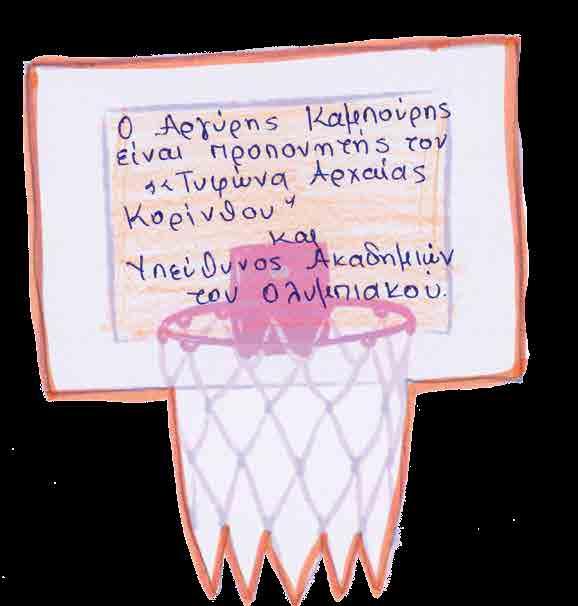 Ο Αργύρης Καμπούρης
είναι προπονητής του
«Τυφώνα Αρχαίας
Κορίνθου"
και
Υπεύθυνος Ακαδημιών
του Ολυμπιακού.